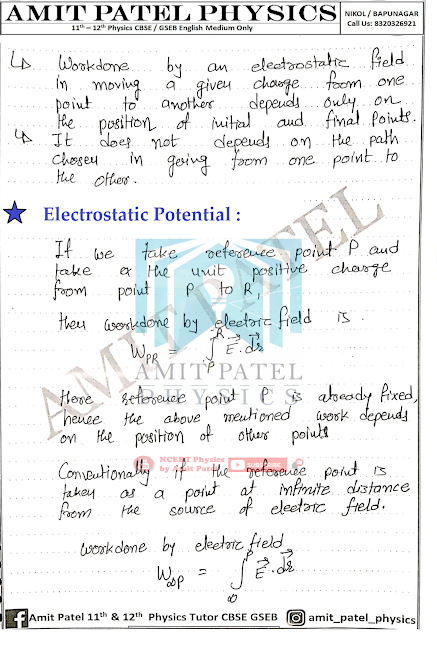 AMIT PATEL PHYSICS
11th – 12th Physics CBSE / GSEB English Medium Only
NIKOL / BAPUNAGAR
Call Us: 8320326921
↳ Workdone by an electrostatic field
in moving a given charge from one
point to another depends only on
the position of initial and final points.
↳ It does not depends on the path
chosen in going from one point to
the other.
★ Electrostatic Potential :
If we take reference point P and
take the unit positive charge
from point P to R,
then workdone by electric field is
W_PR = ∫_P^R E⃗ . dr⃗
Here reference point P is already fixed,
hence the above mentioned work depends
on the position of other points
Conventionally if the reference point is
taken as a point at infinite distance
from the source of electric field.
workdone by electric field
W_∞P = ∫_∞^P E⃗ . dr⃗
AMIT PATEL
AMIT PATEL
PHYSICS
NCERT Physics
by Amit Patel
Amit Patel 11th & 12th Physics Tutor CBSE GSEB amit_patel_physics